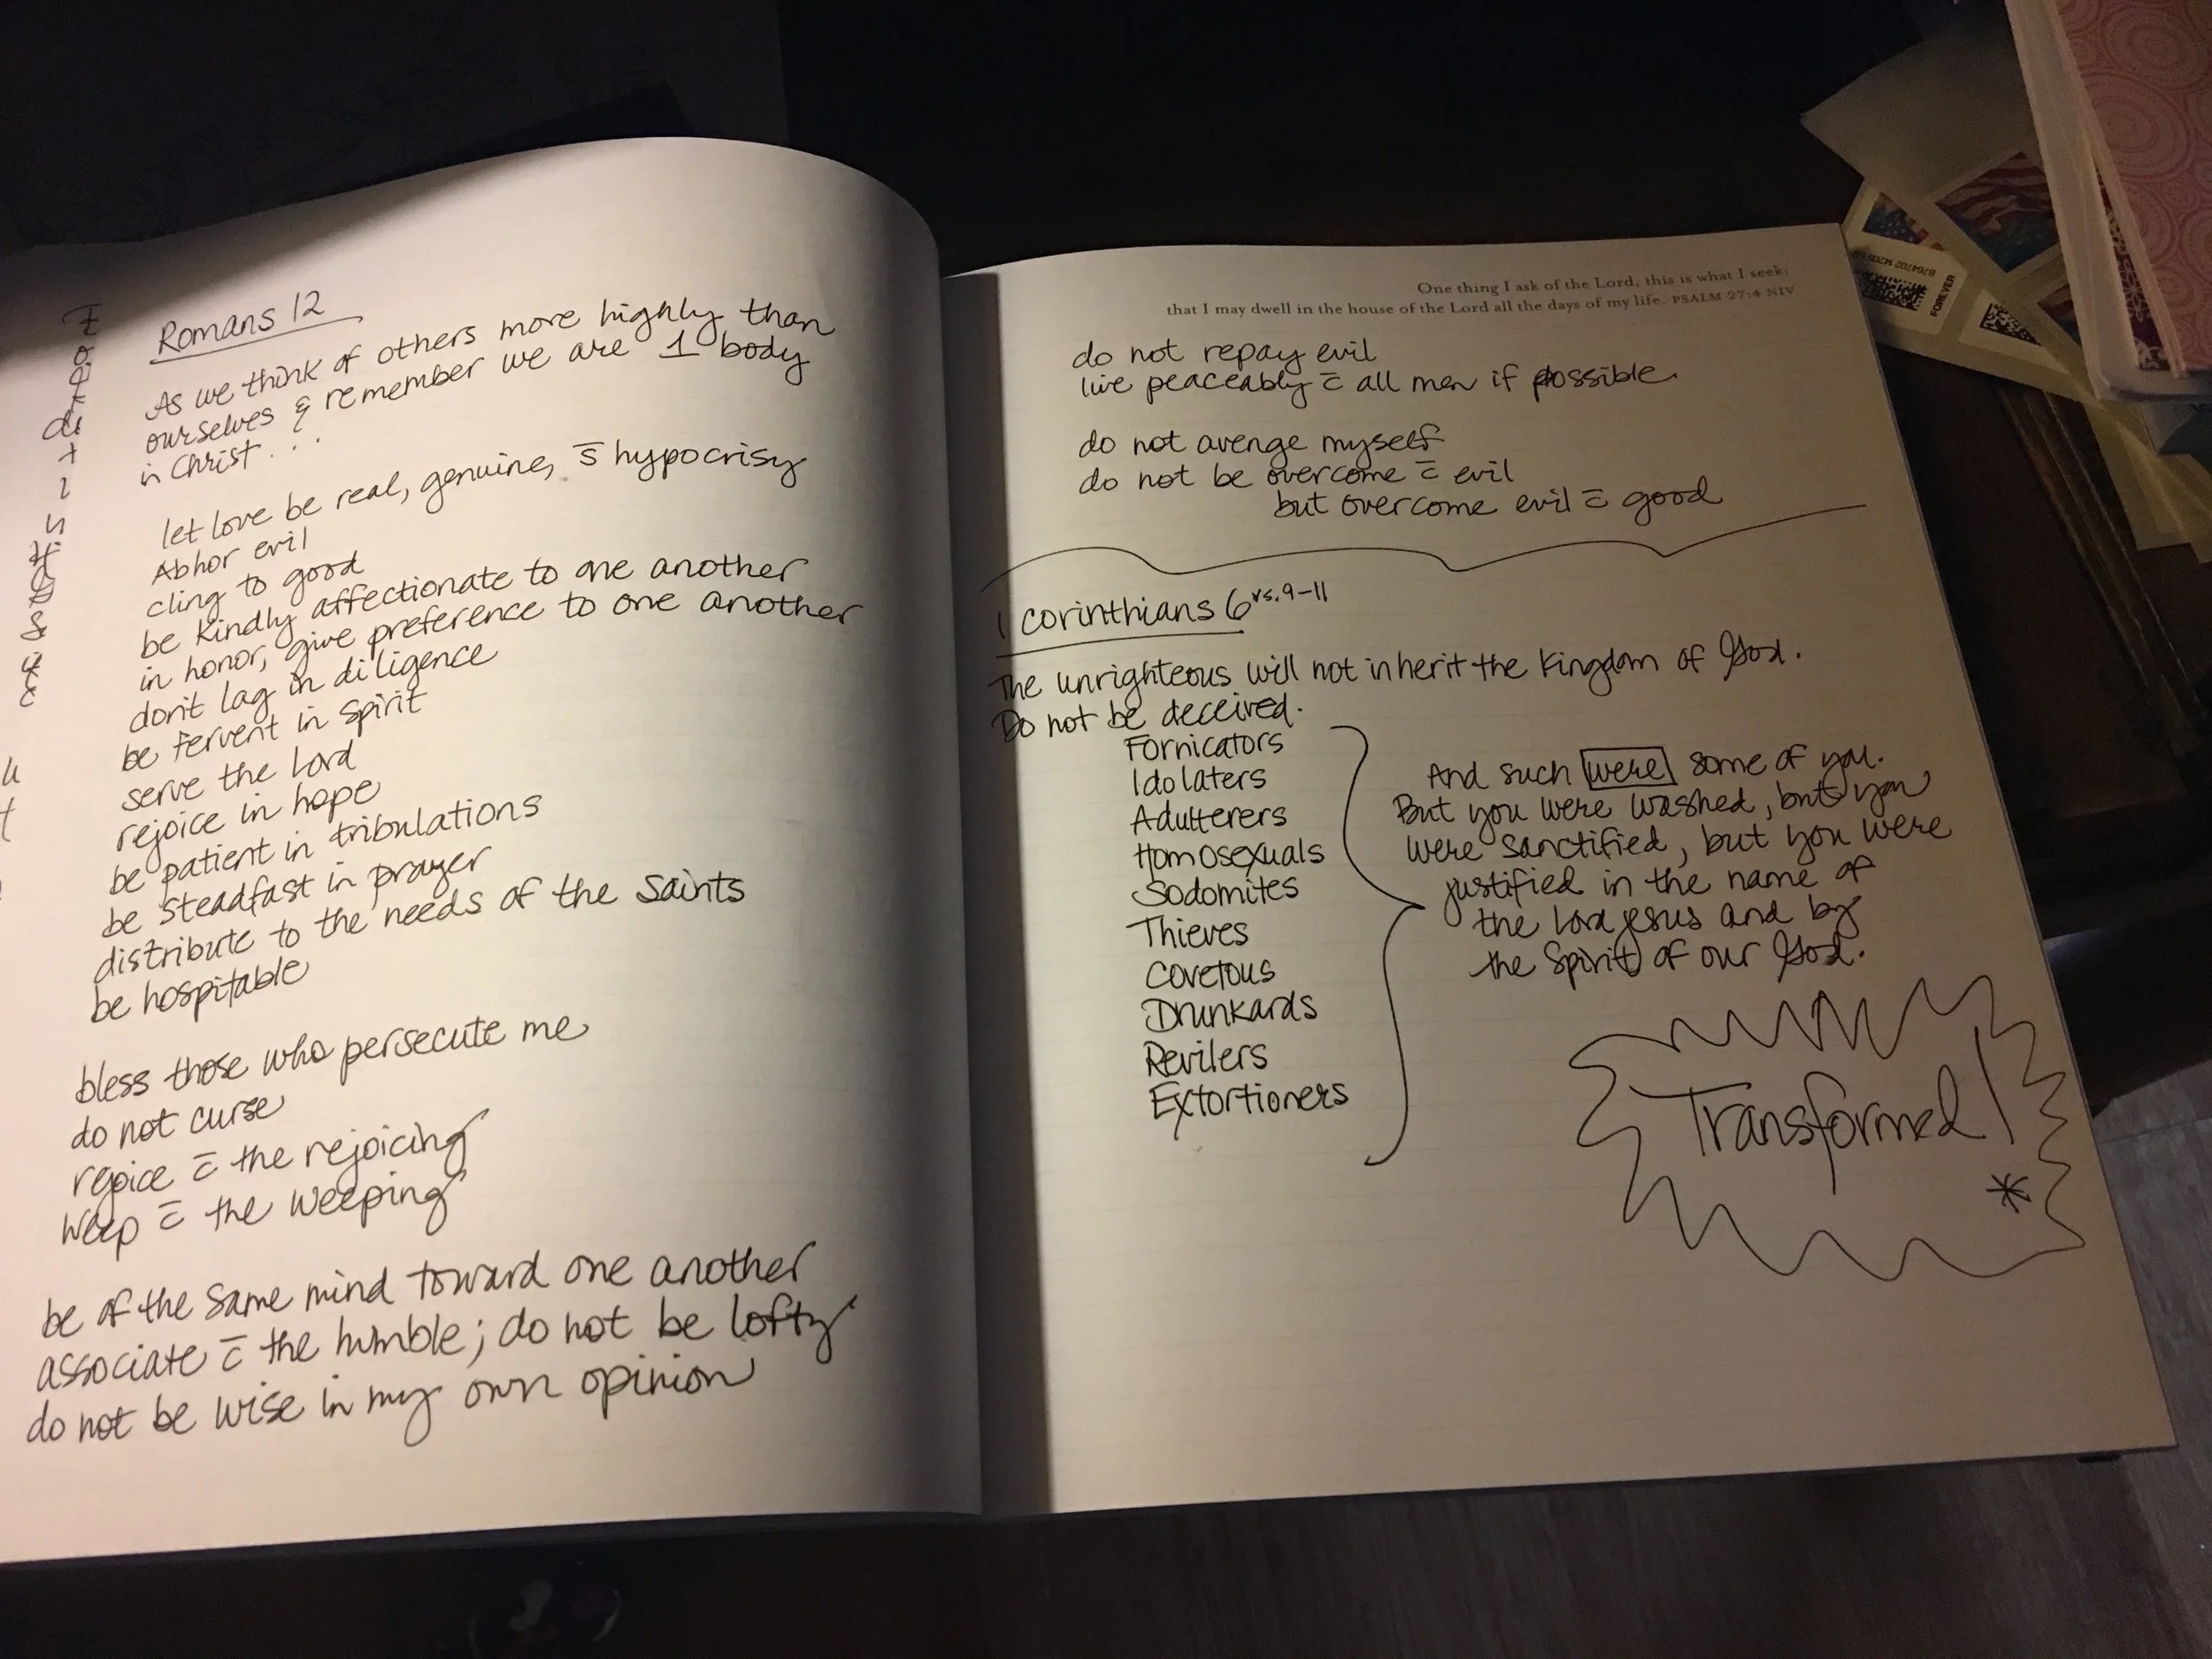 Romans 12
As we think of others more highly than
ourselves & remember we are 1 body
in Christ...
let love be real, genuine, s̄ hypocrisy
Abhor evil
cling to good
be kindly affectionate to one another
in honor, give preference to one another
don't lag in diligence
be fervent in spirit
serve the Lord
rejoice in hope
be patient in tribulations
be steadfast in prayer
distribute to the needs of the saints
be hospitable
bless those who persecute me
do not curse
rejoice c̄ the rejoicing
weep c̄ the weeping
be of the same mind toward one another
associate c̄ the humble; do not be lofty
do not be wise in my own opinion
One thing I ask of the Lord, this is what I seek:
that I may dwell in the house of the Lord all the days of my life. PSALM 27:4 NIV
do not repay evil
live peaceably c̄ all men if possible.
do not avenge myself
do not be overcome c̄ evil
but overcome evil c̄ good
1 Corinthians 6 vs. 9-11
The unrighteous will not inherit the Kingdom of God.
Do not be deceived.
Fornicators
Idolaters
Adulterers
Homosexuals
Sodomites
Thieves
Covetous
Drunkards
Revilers
Extortioners
And such were some of you.
But you were washed, but you
were sanctified, but you were
justified in the name of
the Lord Jesus and by
the Spirit of our God.
Transformed!
*
FOREVER